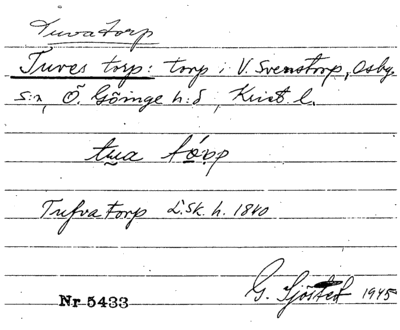 Tuvatorp
Tuves torp: torp i V. Svenstorp, Osby
s:n, Ö. Göinge h:d, Krist. l.
tua torp
Tufvatorp L.sk. h. 1840
Nr 5433 G. Sjöstedt 1945